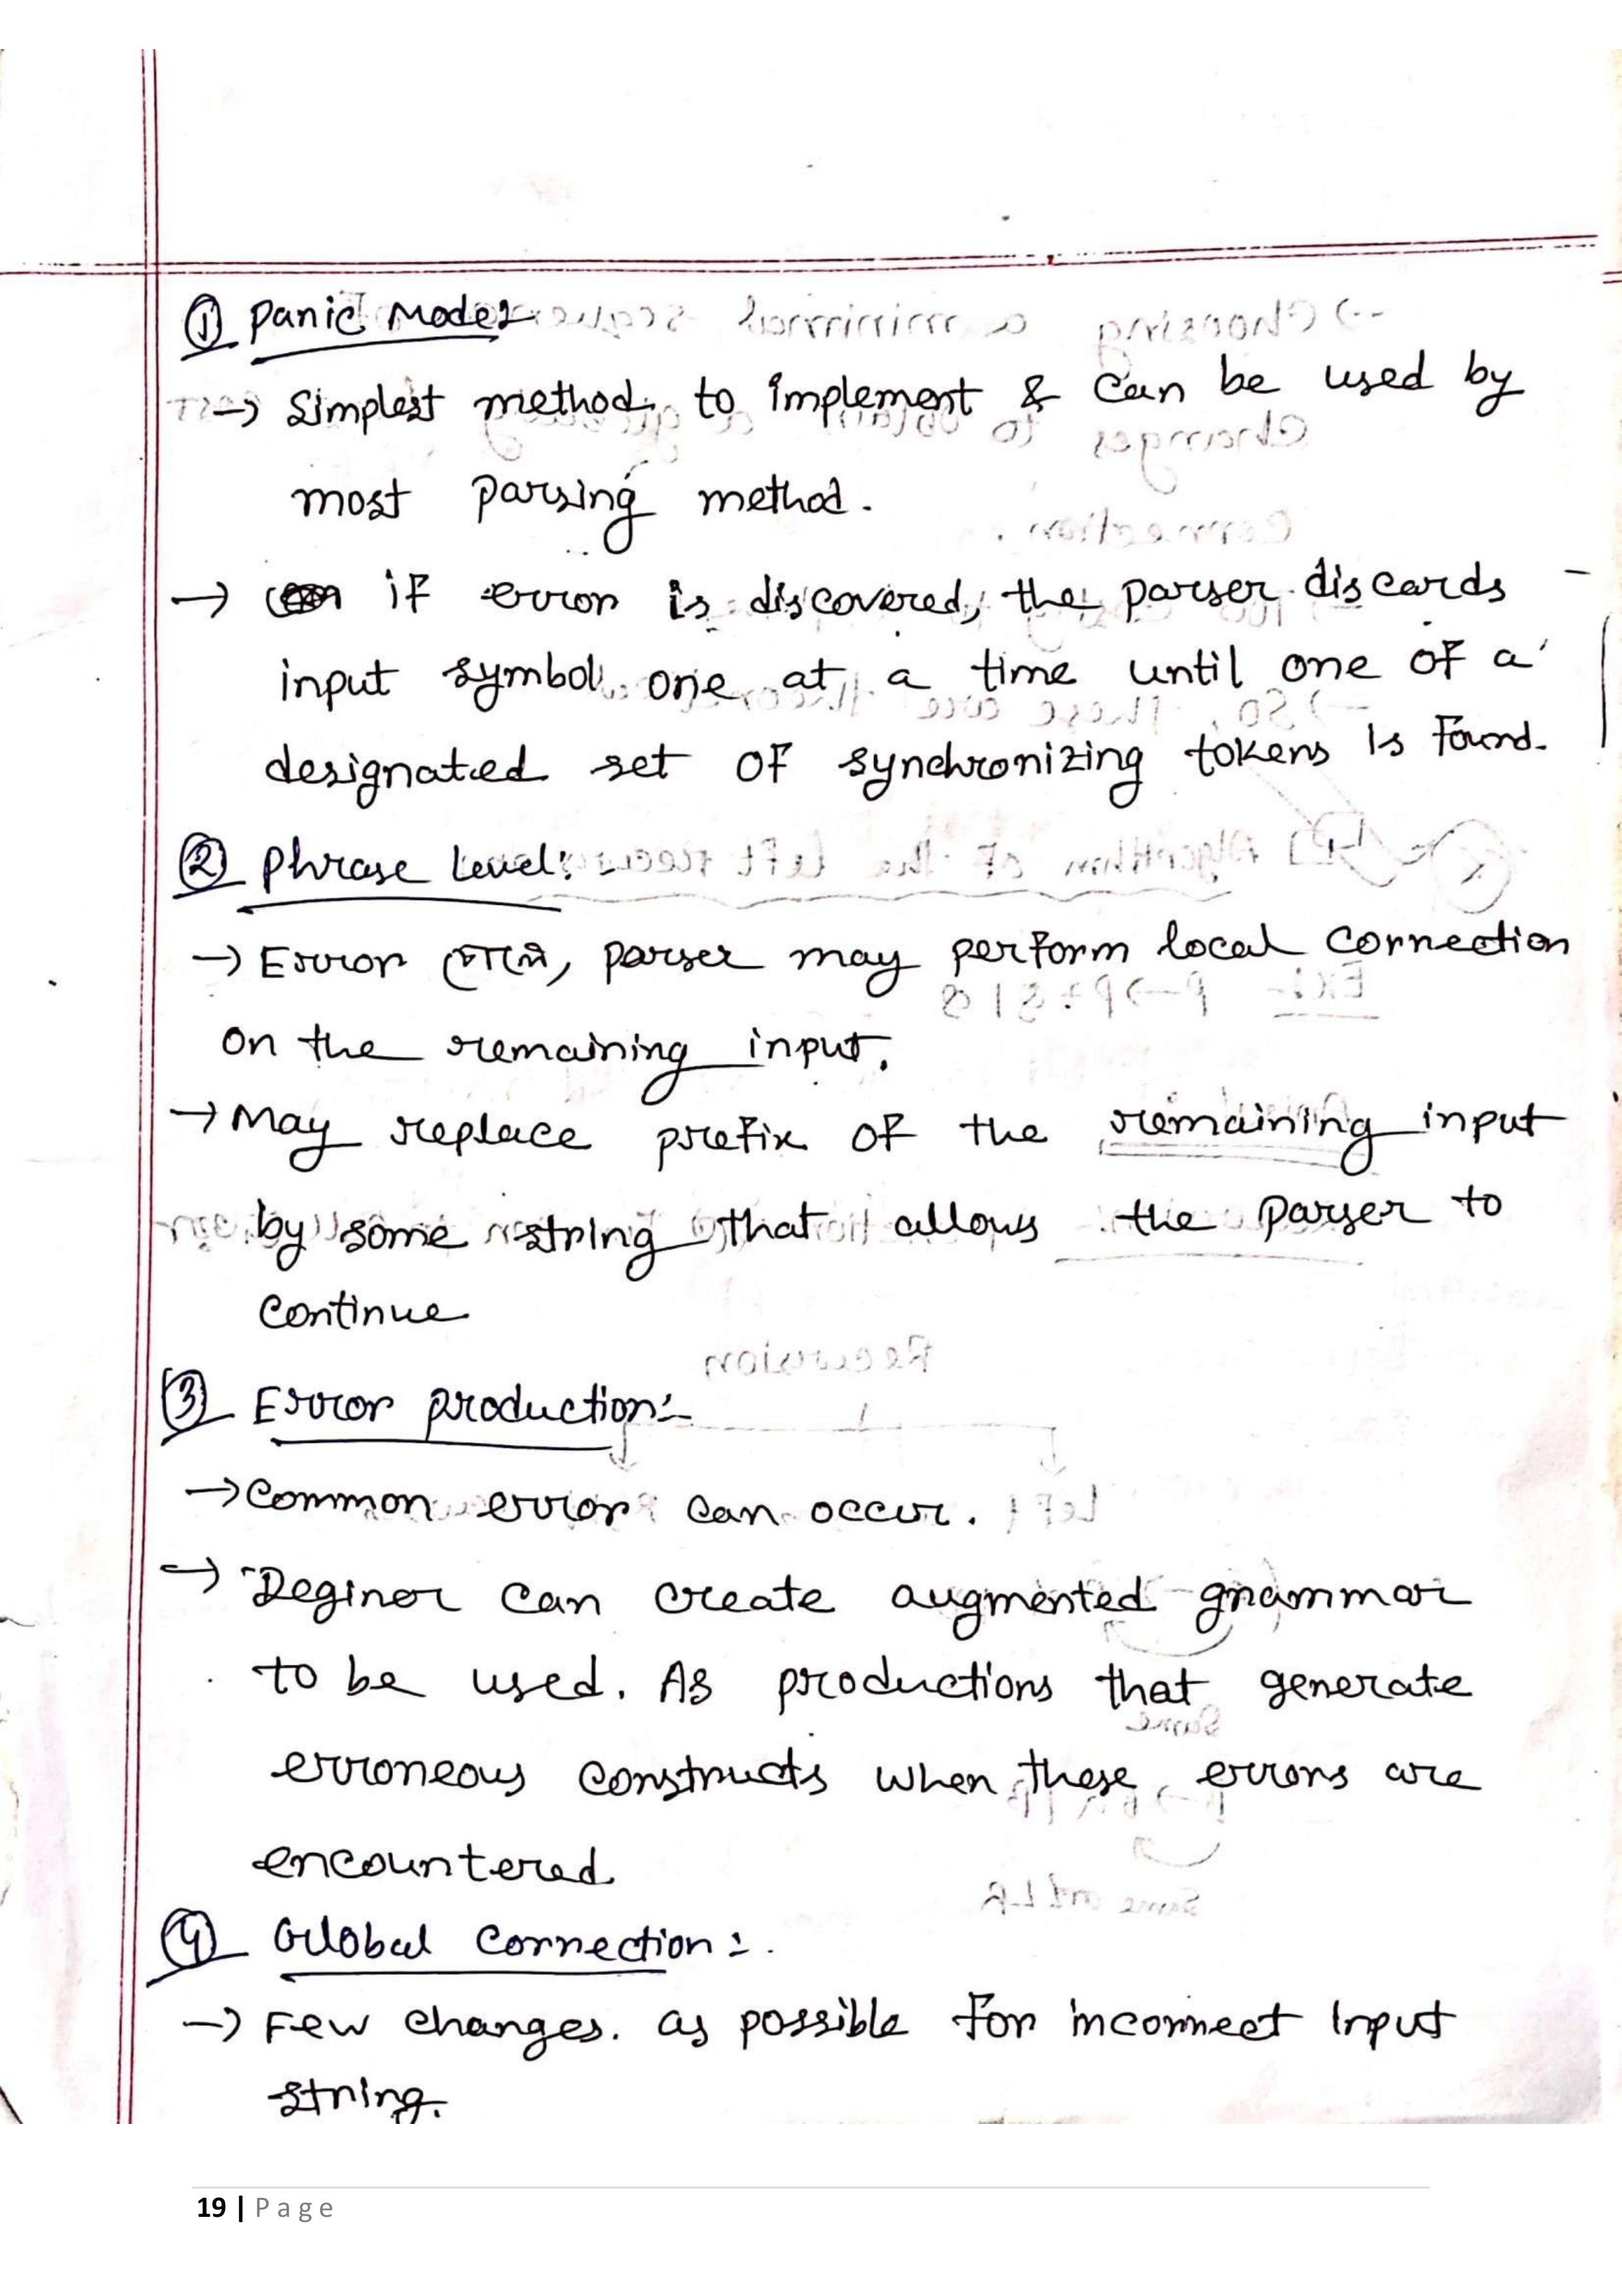 ① Panic Mode:-
→ Simplest method to implement & can be used by
most parsing method.
→ if error is discovered, the parser discards
input symbol one at a time until one of a
designated set of synchronizing tokens is found.
② Phrase Level:
→ Error পেলে, parser may perform local correction
on the remaining input.
→ May replace prefix of the remaining input
by some string that allows the parser to
continue
③ Error production:-
→ Common error can occur.
→ Deginer can create augmented grammar
to be used. As productions that generate
erroneous constructs when these errors are
encountered
④ Global correction:-
→ Few changes. as possible for incorrect input
string.
19 | Page